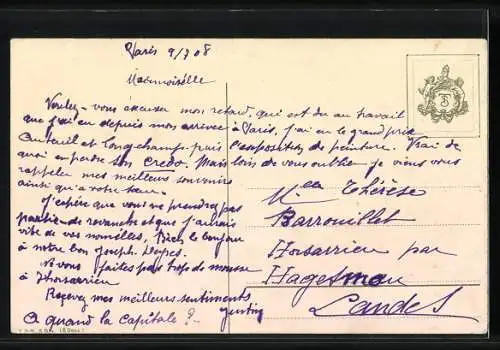 Paris 9/7 08
Mademoiselle
Voulez-vous excuser mon retard, qui est du au travail
que j'ai eu depuis mon arrivée à Paris, j'ai eu le grand prix
Auteuil et Longchamp, puis l'exposition de peinture. Vrai de
quoi en perdre son Credo. Mais loin de vous oublier je viens vous
rappeler mes meilleurs souvenirs
ainsi qu'a votre
J'espère que vous ne prendrez pas
partie de revanche et que j'aurais
vite de vos nouvelles, Bien le bonjour
à notre bon Joseph
Ne vous faites pas trop de mousse
à Hosarrieu
Recevez mes meilleurs sentiments
A quand la capitale ?
Melle Thérèse
Barrouillet
Horsarrieu par
Hagetmau
Landes